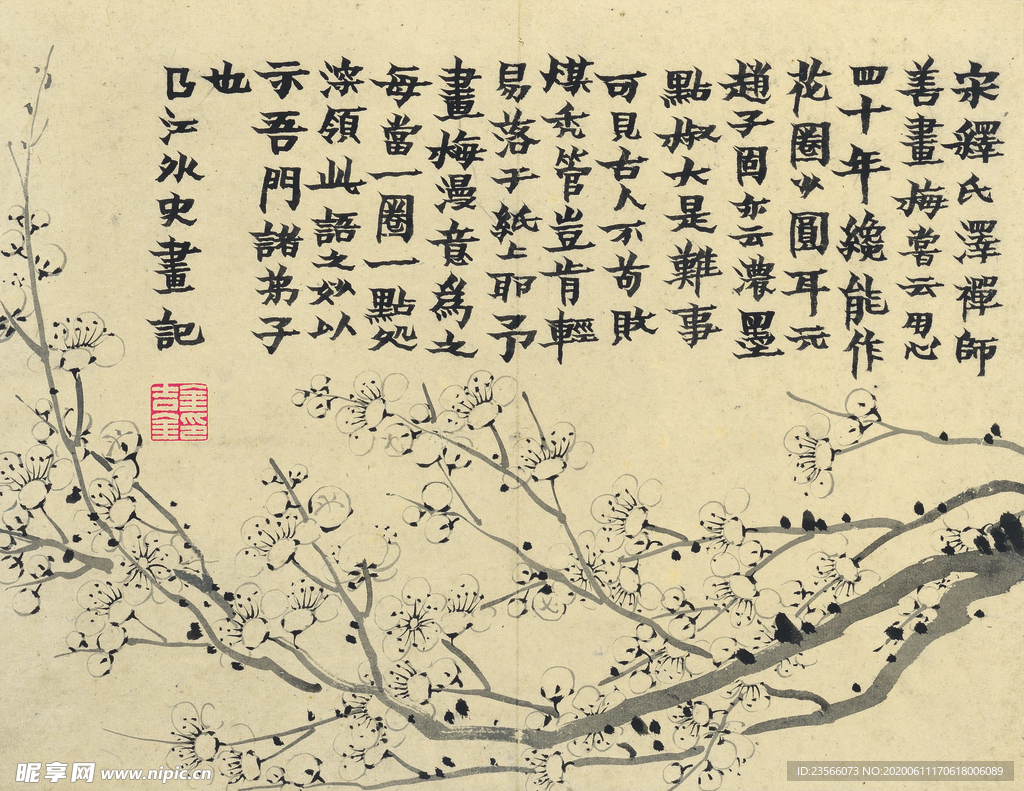 宋繹氏澤禪師
善畫梅嘗云用心
四十年纔能作
花圈少圓耳元
趙子固亦云濃墨
點椒大是難事
可見古人不苟賤
煤禿管豈肯輕
易落于紙上耶予
畫梅漫意為之
每當一圈一點処
深領此語之妙以
示吾門諸弟子
也
㔾江外史畫記
金吉金印
昵享网 www.nipic.cn
ID:23566073 NO:20200611170618006089